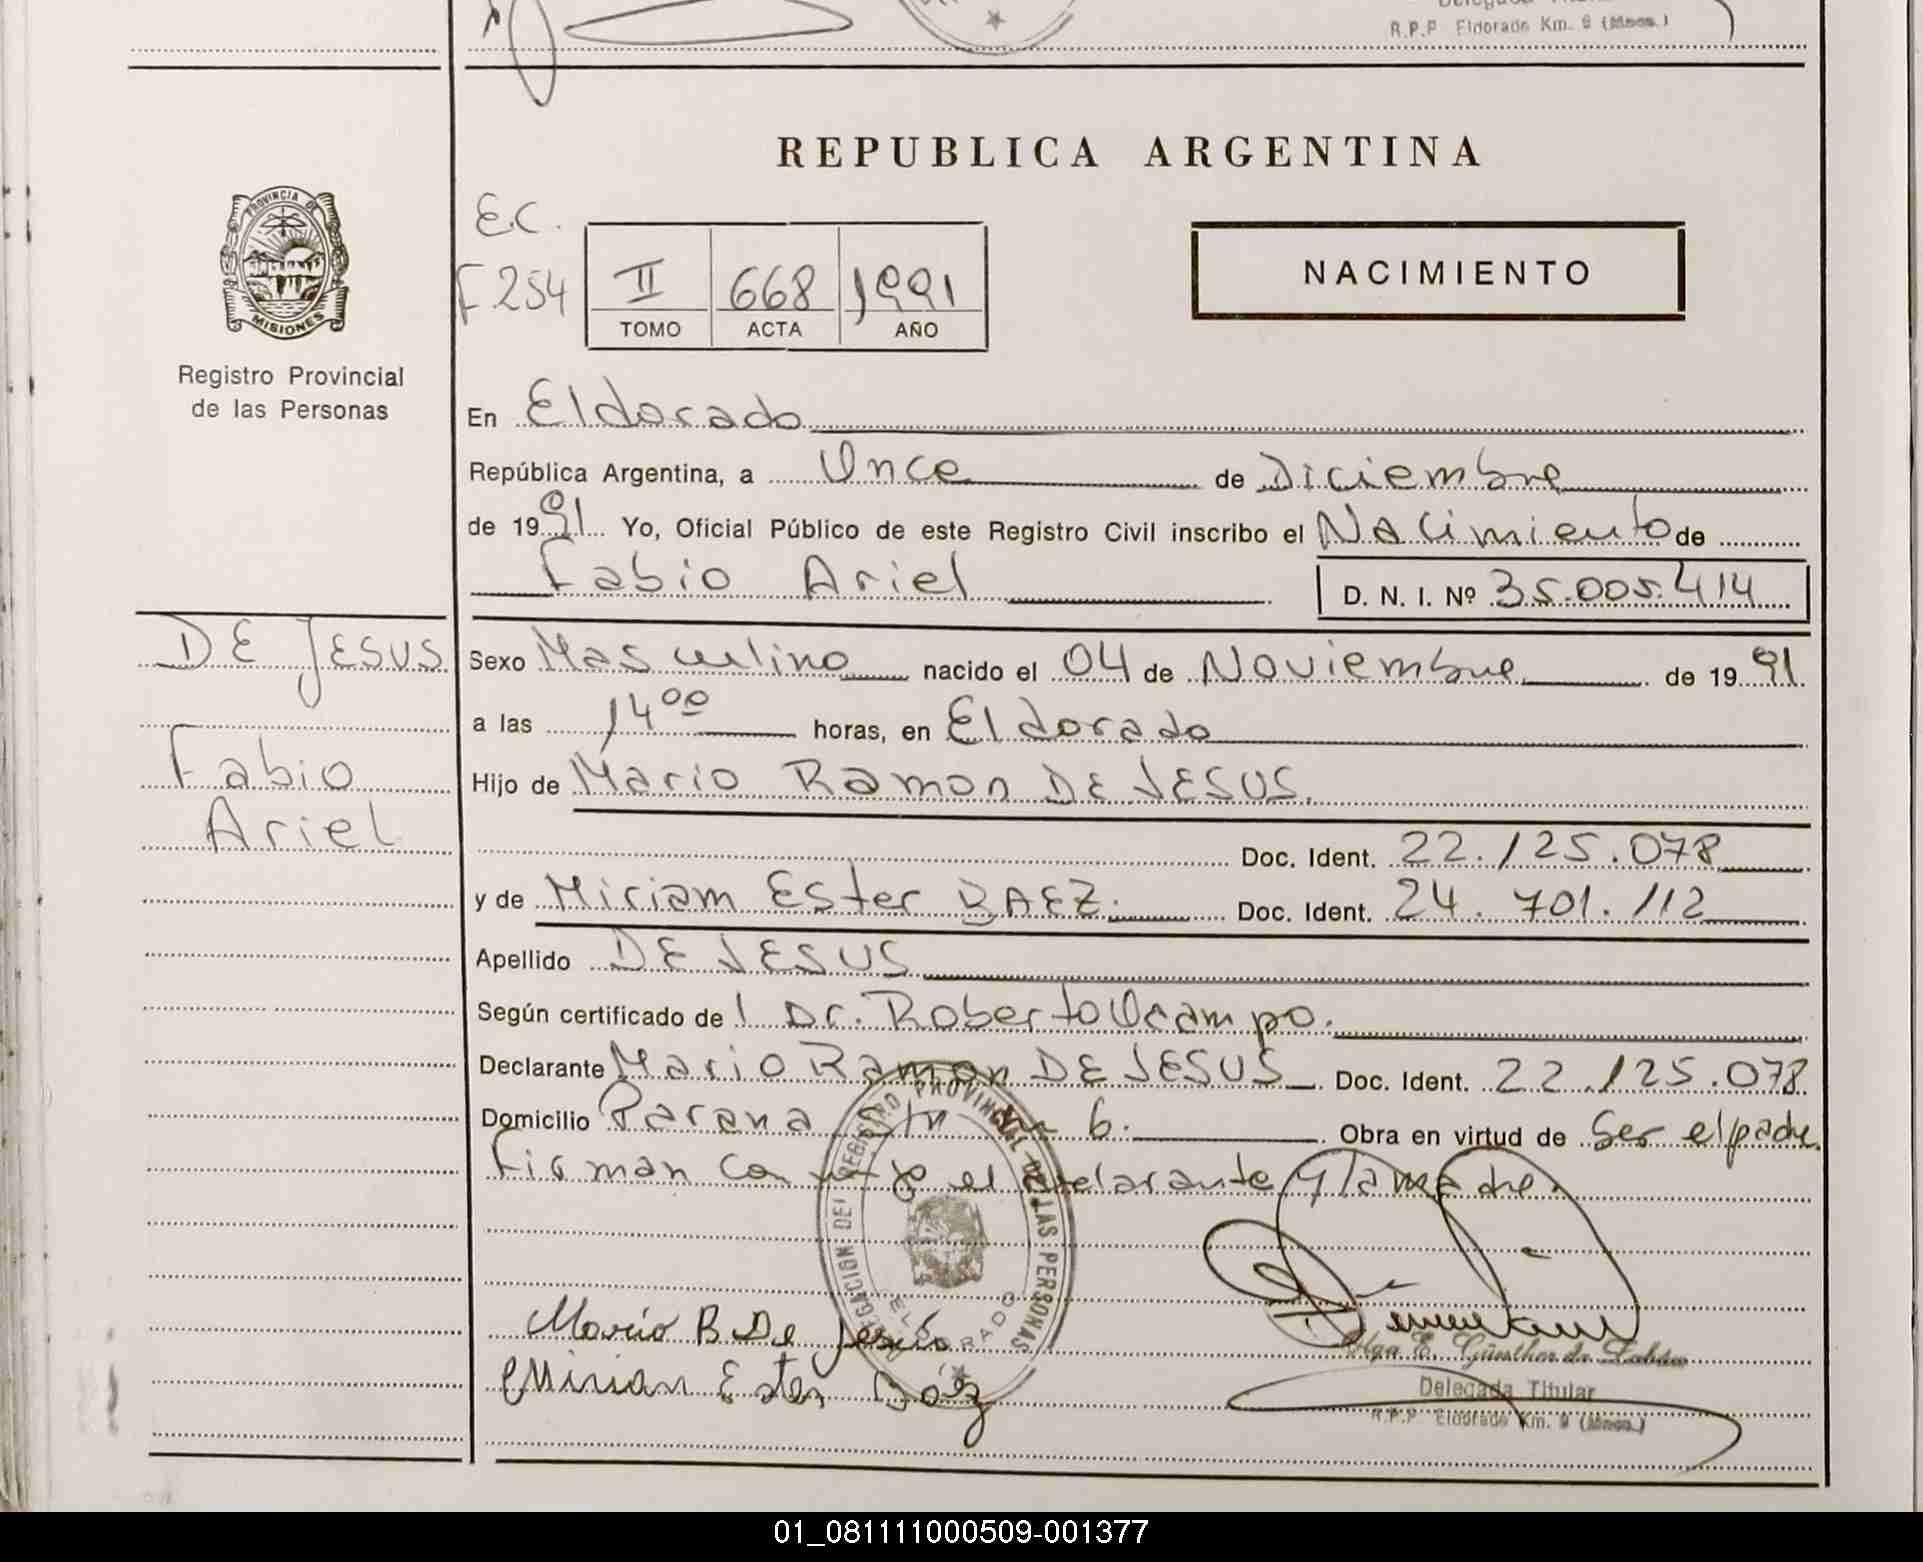 R.P.P Eldorado Km. 9 (Mnes.)
REPUBLICA ARGENTINA
PROVINCIA DE
MISIONES
Registro Provincial
de las Personas
E.C.
F 254
II 668 1991
TOMO ACTA AÑO
NACIMIENTO
En Eldorado
República Argentina, a Once de Diciembre
de 1991 Yo, Oficial Público de este Registro Civil inscribo el Nacimiento de
Fabio Ariel D. N. I. Nº 35.005.414
DE JESUS
Fabio
Ariel
Sexo Masculino nacido el 04 de Noviembre de 1991
a las 14 00 horas, en Eldorado
Hijo de Mario Ramon DE JESUS.
Doc. Ident. 22.125.078
y de Miriam Ester BAEZ. Doc. Ident. 24.701.112
Apellido DE JESUS
Según certificado de l Dr. Roberto Ocampo.
Declarante Mario Ramon DE JESUS Doc. Ident. 22.125.078
Domicilio Parana S/n Km 6. Obra en virtud de Ser el padre
Firman con migo el declarante y la madre.
DELEGACION DEL REGISTRO PROVINCIAL DE LAS PERSONAS
ELDORADO
Mario R De Jesús
Mirian Ester Báez
Olga E. Günther de
Delegada Titular
R.P.P Eldorado Km. 9 (Mnes.)
01_081111000509-001377